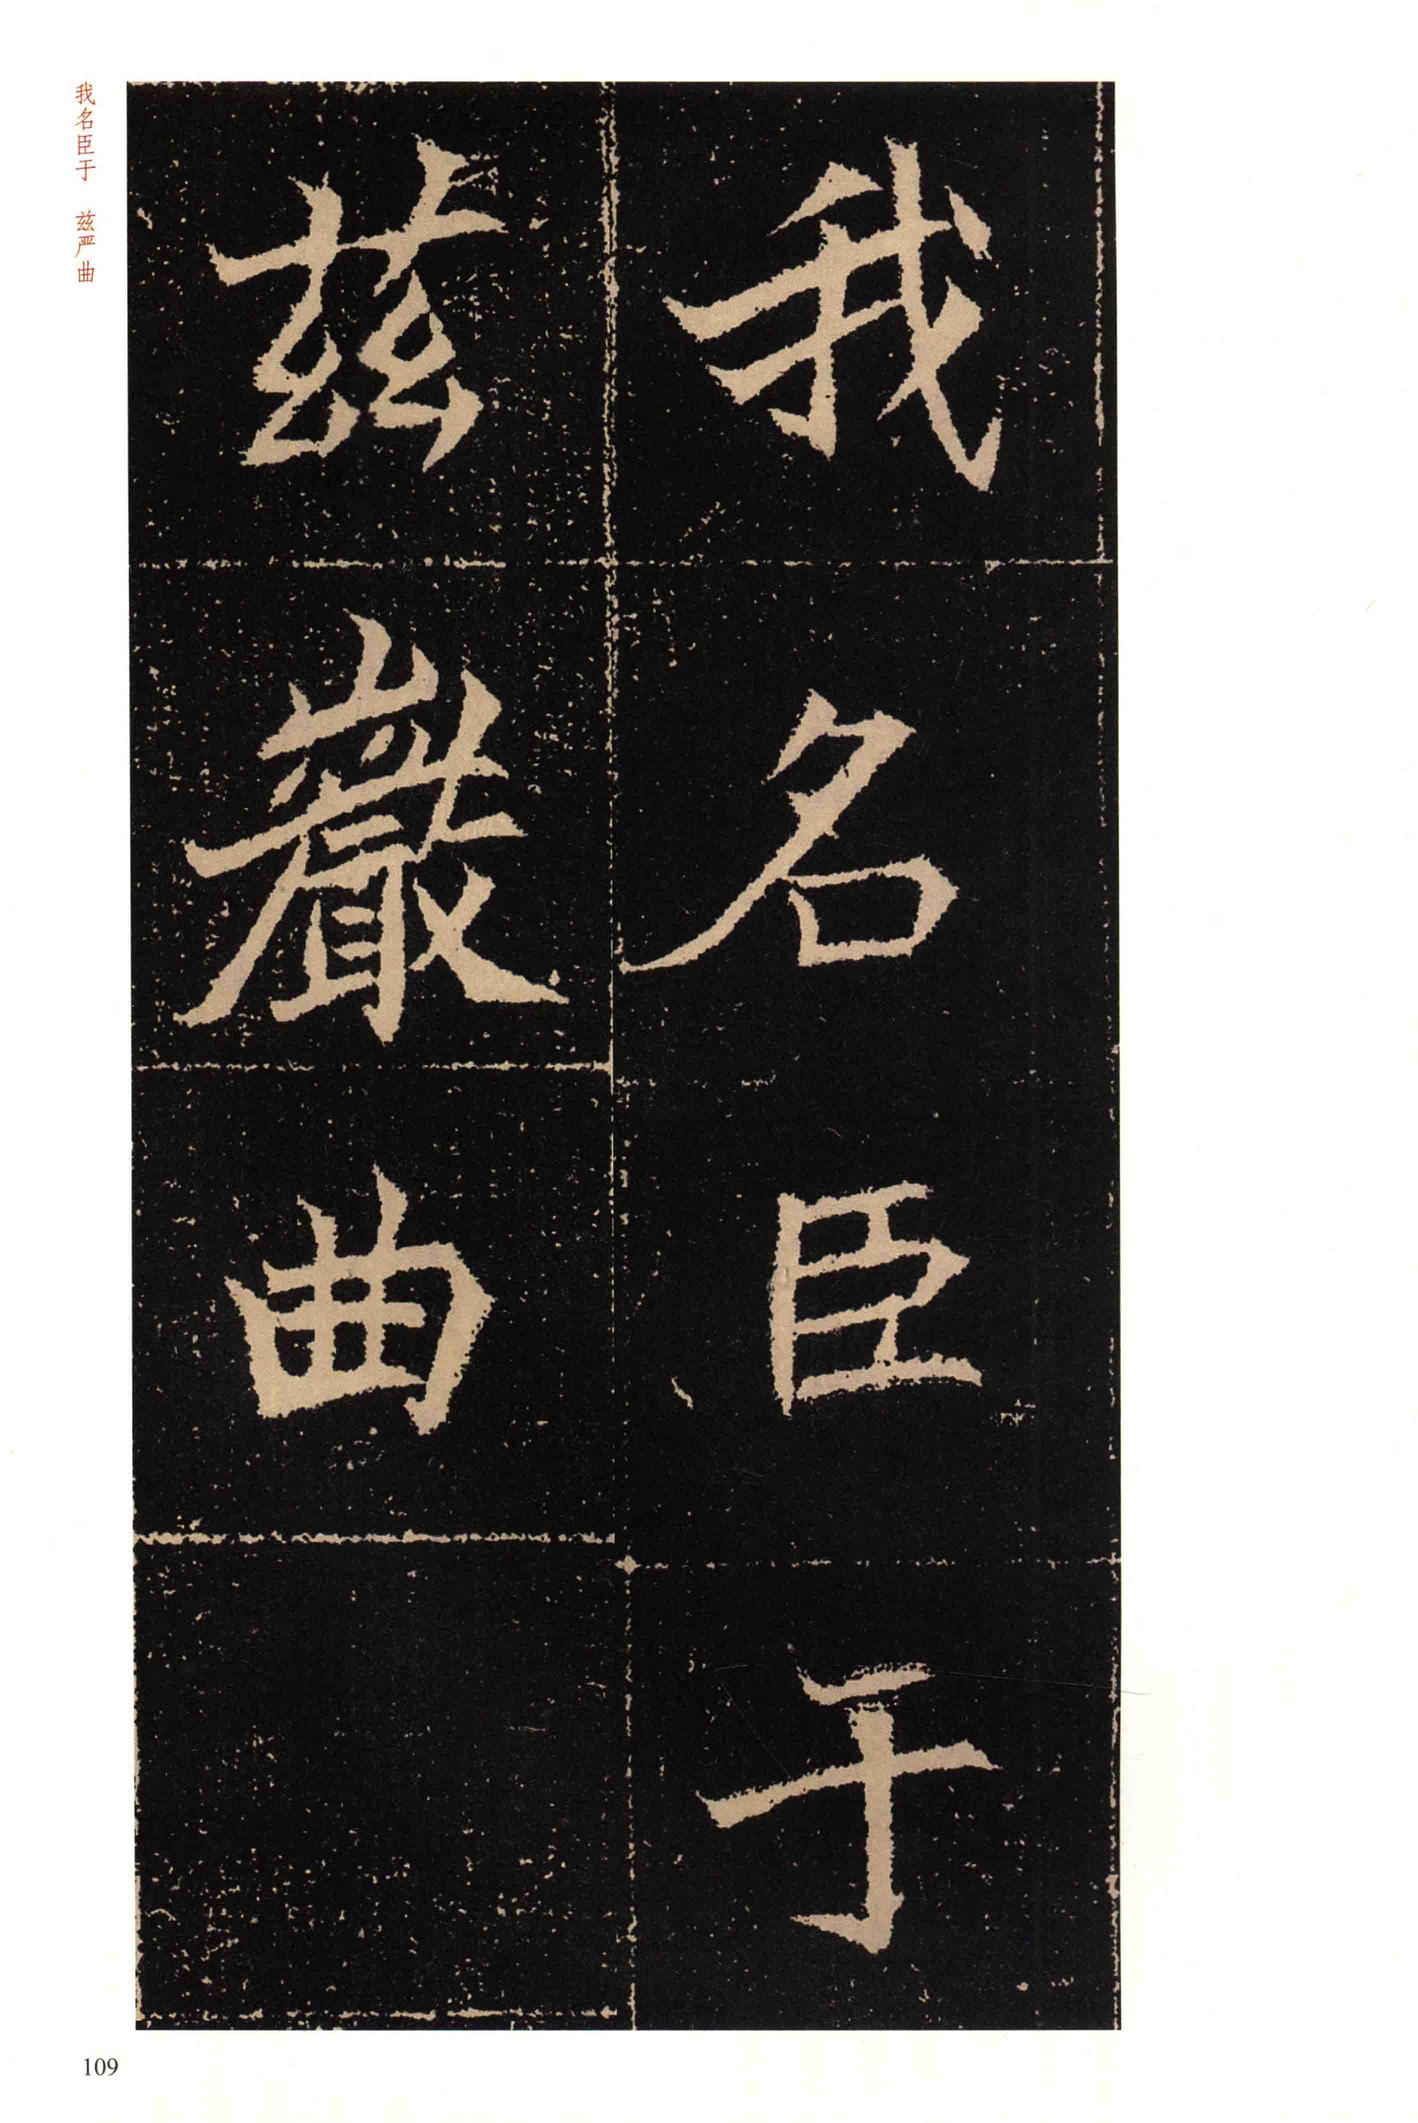 我名臣于
兹巖曲
我名臣于 兹严曲
109